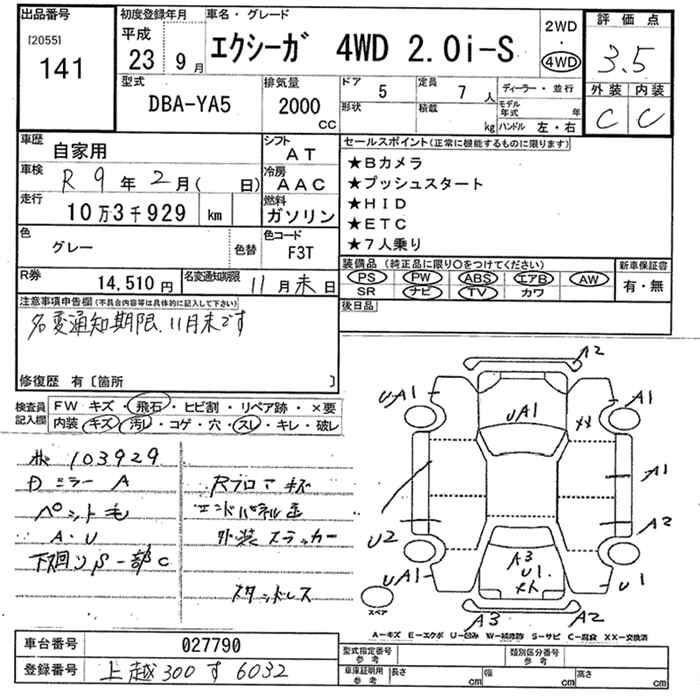 出品番号
[2055]
141
初度登録年月
平成
23年 9月
車名・グレード
エクシーガ 4WD 2.0i-S
2WD
・
4WD
評価点
3.5
外装 内装
C C
型式
DBA-YA5
排気量
2000 CC
ドア 5
形状
定員 7人
積載 kg
ディーラー・並行
モデル年式 年
ハンドル 左・右
車歴 自家用
車検 R 9年 2月( 日)
走行 10万3千929 km
シフト AT
冷房 AAC
燃料 ガソリン
色 グレー
色替
色コード F3T
R券 14,510円
名変通知期限 11月末日
セールスポイント(正常に機能するものに限ります)
★Bカメラ
★プッシュスタート
★HID
★ETC
★7人乗り
装備品 (純正品に限り○をつけてください)
PS PW ABS エアB AW
SR ナビ TV カワ
新車保証書
有・無
後日品
注意事項申告欄(不具合内容等は具体的に記入して下さい)
名変通知期限、11月末です
修復歴 有〔箇所 〕
検査員記入欄
FW キズ・飛石・ヒビ割・リペア跡・×要
内装 キズ・汚レ・コゲ・穴・スレ・キレ・破レ
103929
ミラー A
ペット毛
A・U
下廻りS一部C
Rフロアキズ
エンドパネル歪
外装ステッカー
スタッドレス
A2
UA1
UA1
XX
A1
A1
A2
U2
UA1
A3
U1
XX
U1
A3
A2
スペア
A-キズ E-エクボ U-凹み W-補修跡 S-サビ C-腐食 XX-交換済
車台番号 027790
登録番号 上越300す6032
型式指定番号 参考
類別区分番号 参考
車庫証明用 参考
長さ cm
幅 cm
高さ cm